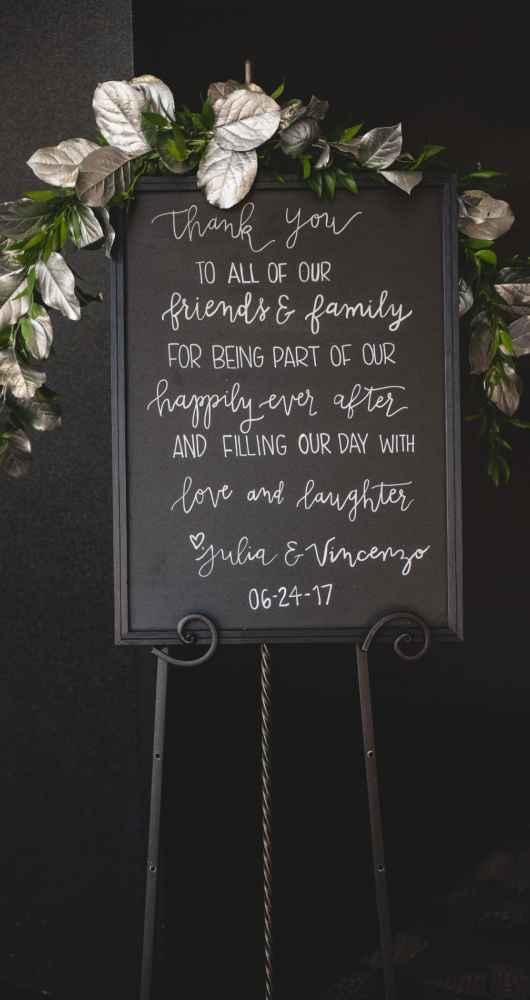 Thank you
TO ALL OF OUR
friends & family
FOR BEING PART OF OUR
happily ever after
AND FILLING OUR DAY WITH
love and laughter
♡Julia & Vincenzo
06-24-17